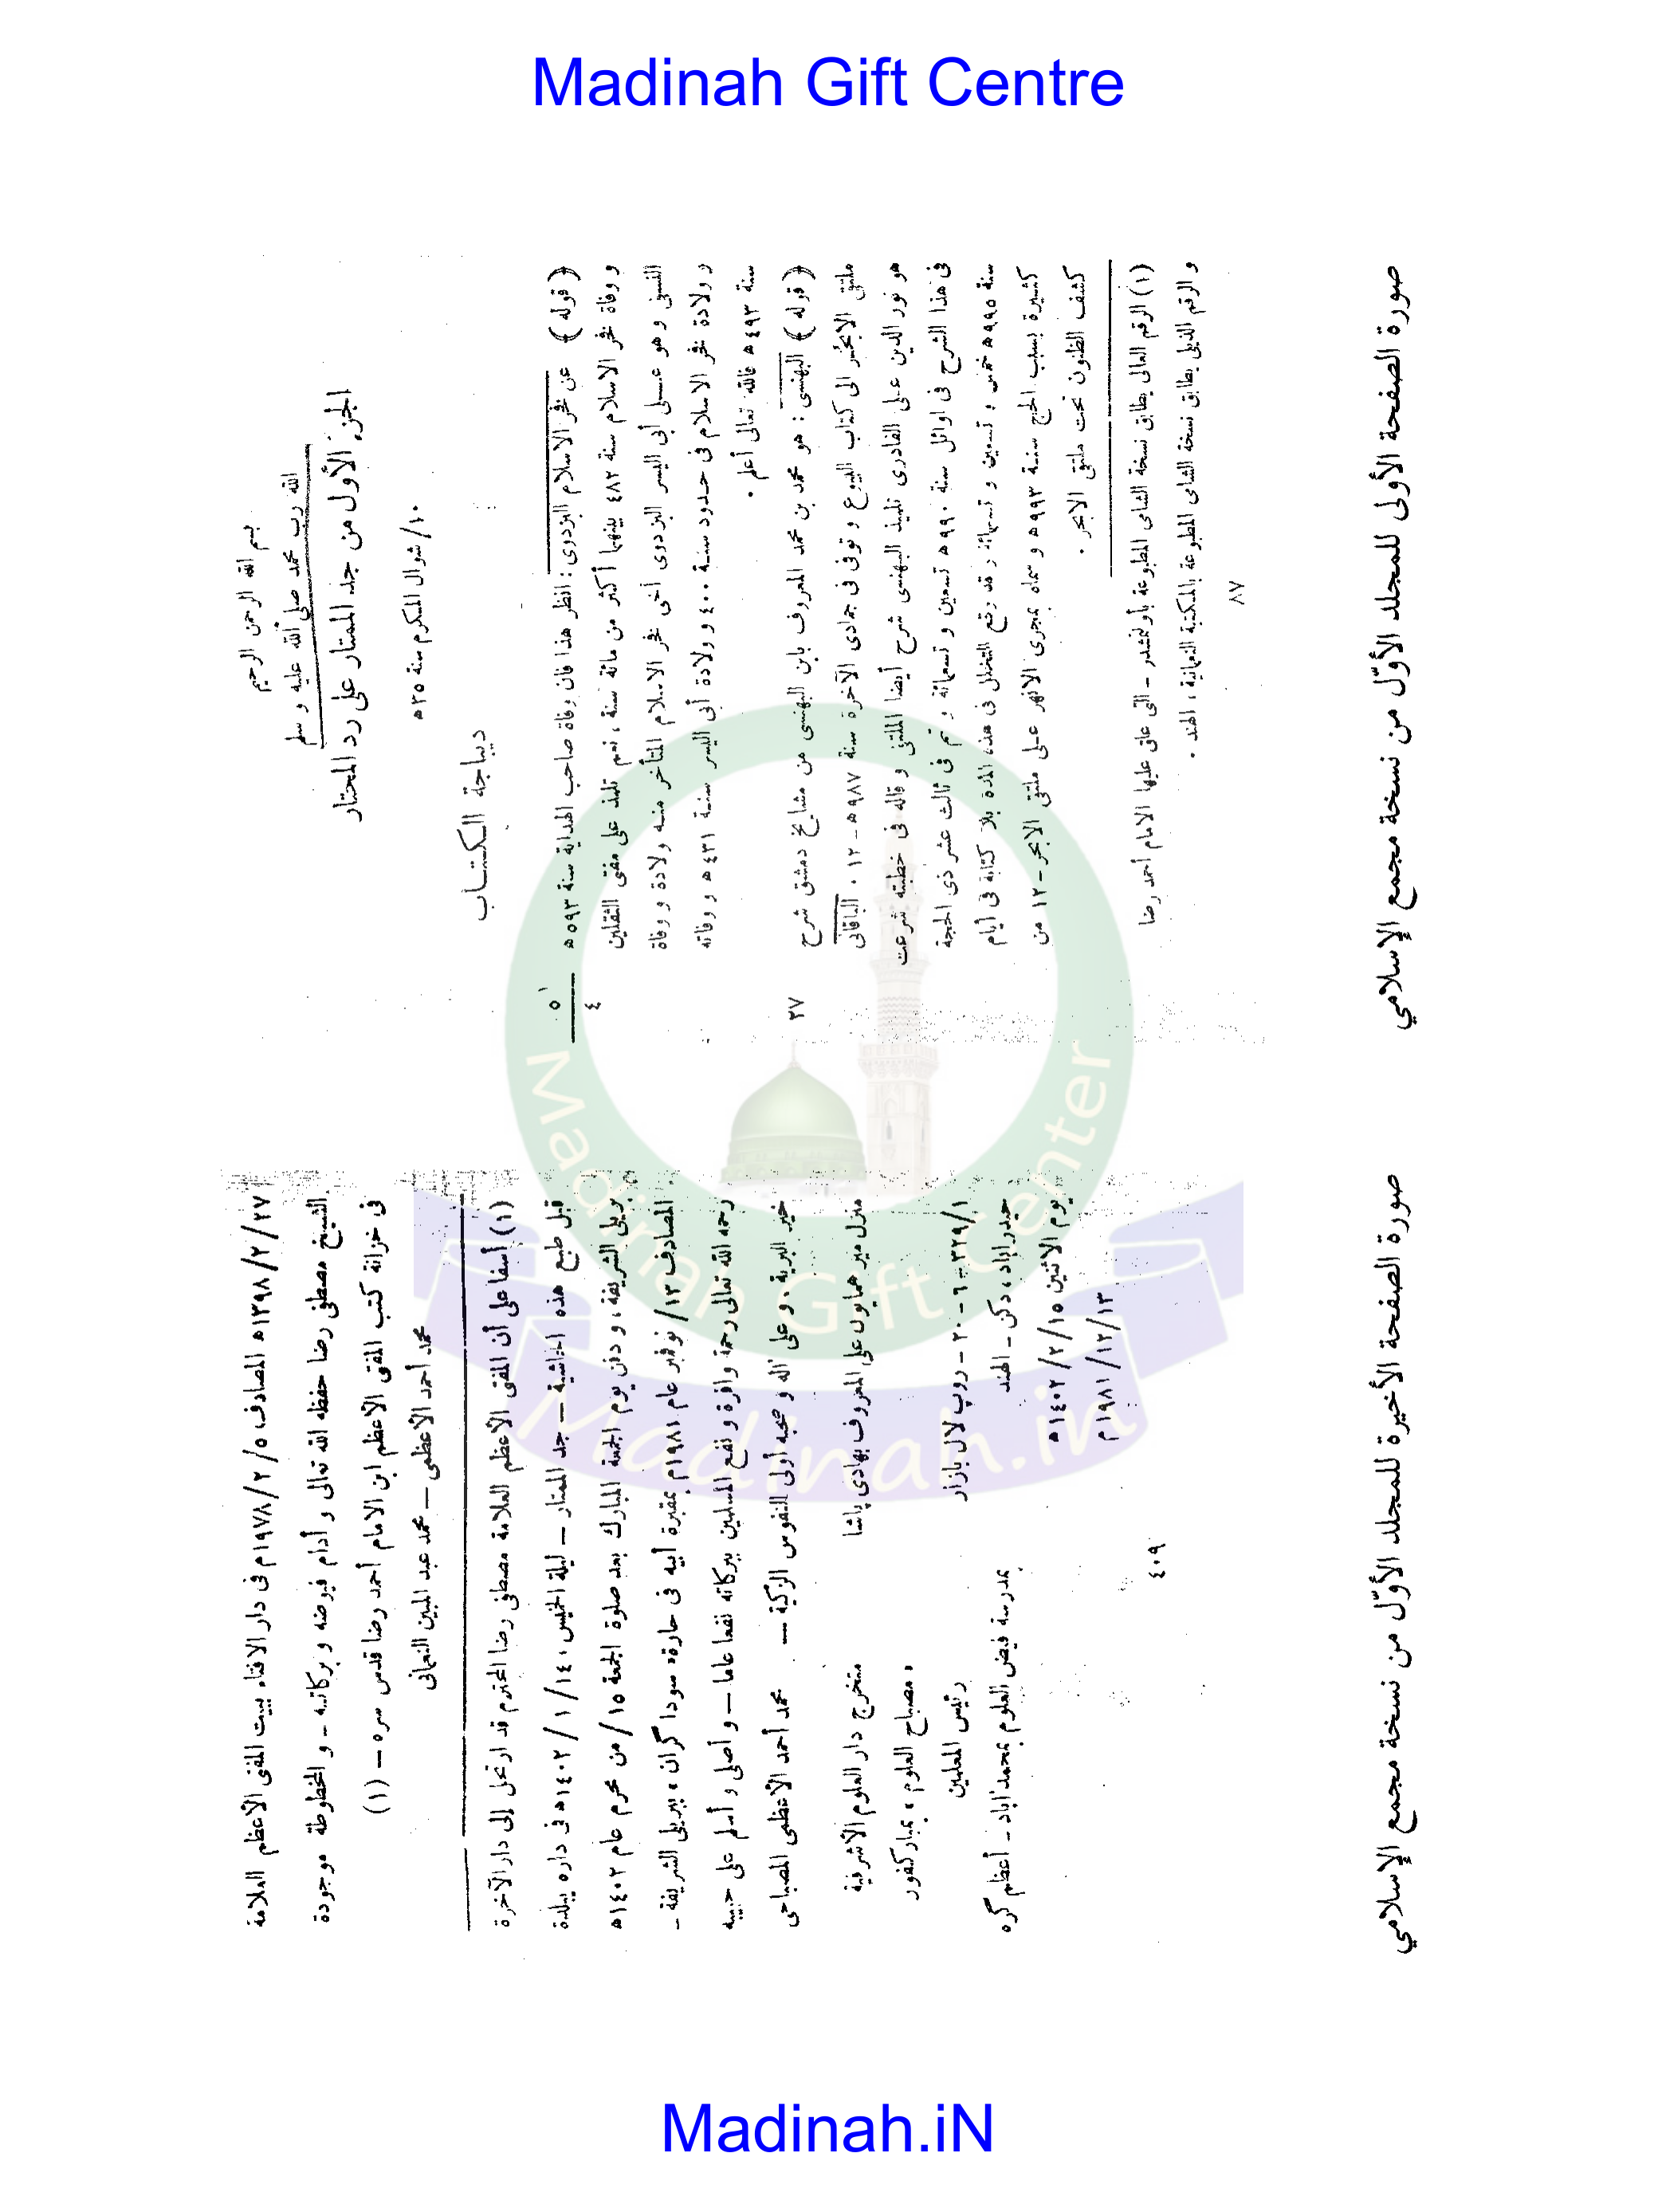 Madinah Gift Centre
بسم الله الرحمن الرحيم
الله رب محمد صلى الله عليه و سلم
الجزء الأول من جد الممتار على رد المحتار
١٠/شوال المكرم سنة ٣٥ه
ديباجة الكتاب
( قوله ) عن فخر الاسلام البزدوى : انظر هذا فان وفاة صاحب الهداية سنة ٥٩٣ه
و وفاة فخر الاسلام سنة ٤٨٢ بينهما أكثر من مائة سنة ، نعم تلمذ على مفتى الثقلين
النسفى و هو على أبى اليسر البزدوى أخى فخر الاسلام المتأخر منه ولادة و وفاة
و ولادة فخر الاسلام فى حدود سنة ٤٠٠ و ولادة أبى اليسر سنة ٤٣١ه و وفاته
سنة ٤٩٣ه فالله تعالى أعلم .
( قوله ) البهنسى : هو محمد بن محمد المعروف بابن البهنسى من مشايخ دمشق شرح
ملتقى الابحر الى كتاب البيوع و توفى فى جمادى الآخرة سنة ٩٨٧ه - ١٢ . الباقانى
هو نور الدين على القادرى تلميذ البهنسى شرح أيضا الملتقى و قاله فى خطبته شرعت
فى هذا الشرح فى اوائل سنة ٩٩٠ه تسعين و تسعمائة و تم فى ثالث عشر ذى الحجة
سنة ٩٩٥ه خمس و تسعين و تسعمائة و قد وقع التخلل فى هذه المدة بلا كتابة فى أيام
كثيرة بسبب الحج سنة ٩٩٣ه و سماه بمجرى الانهر على ملتقى الابحر - ١٢ من
كشف الظنون تحت ملتقى الابحر .
٥
٤
٢٧
(١) الرقم العالى يطابق نسخة الشامى المطبوعة - التى علق عليها الامام أحمد رضا
و الرقم الذيلى يطابق نسخة الشامى المطبوعة بالمكتبة النعمانية ، الهند .
٨٧
صورة الصفحة الأولى للمجلد الأوّل من نسخة مجمع الإسلامي
٢٧/٢/١٣٩٨ه المصادف ٥/٢/١٩٧٨م فى دار الافتاء ببيت المفتى الأعظم العلامة
الشيخ مصطفى رضا حفظه الله تعالى و أدام فيوضه و بركاته - و المخطوطة موجودة
فى خزانة كتب المفتى الأعظم ابن الامام أحمد رضا قدس سره - (١)
محمد أحمد الأعظمى - محمد عبد المبين النعمانى
(١) أسفا على أن المفتى الأعظم العلامة مصطفى رضا المحترم قد ارتحل إلى دار الآخرة
قبل طبع هذه الحاشية - جد الممتار - ليلة الخميس ١٤/١/١٤٠٢ه فى داره ببلدة
بريلى الشريفة ، و دفن يوم الجمعة المبارك بعد صلوة الجمعة ١٥/من محرم عام ١٤٠٢ه
المصادف ١٣/نوفبر عام ١٩٨١م بمقبرة أبيه فى حارة، سودا گران، بريلى الشريفة -
رحمه الله تعالى رحمة وافرة و نفع المسلمين ببركاته نفعا عاما - و أصلى و أسلم على حبيبه
خير البرية، و على آله و صحبه أولى النفوس الزكية -
محمد أحمد الأعظمى المصباحى
منزل مير همايون على المعروف بهادى پاشا
متخرج دار العلوم الأشرفية
، مصباح العلوم ، بمباركفور
٣٢٩/١-٦-٢٠ - روپ لال بازار
رئيس المعلمين
حيدرآباد، دكن - الهند
بمدرسة فيض العلوم بمحمدآباد - أعظم گره
يوم الاثنين ١٥/٢/١٤٠٢ه
١٣/١٢/١٩٨١م
٤٠٩
صورة الصفحة الأخيرة للمجلد الأوّل من نسخة مجمع الإسلامي
Madinah Gift Center
Madinah.in
Madinah.iN